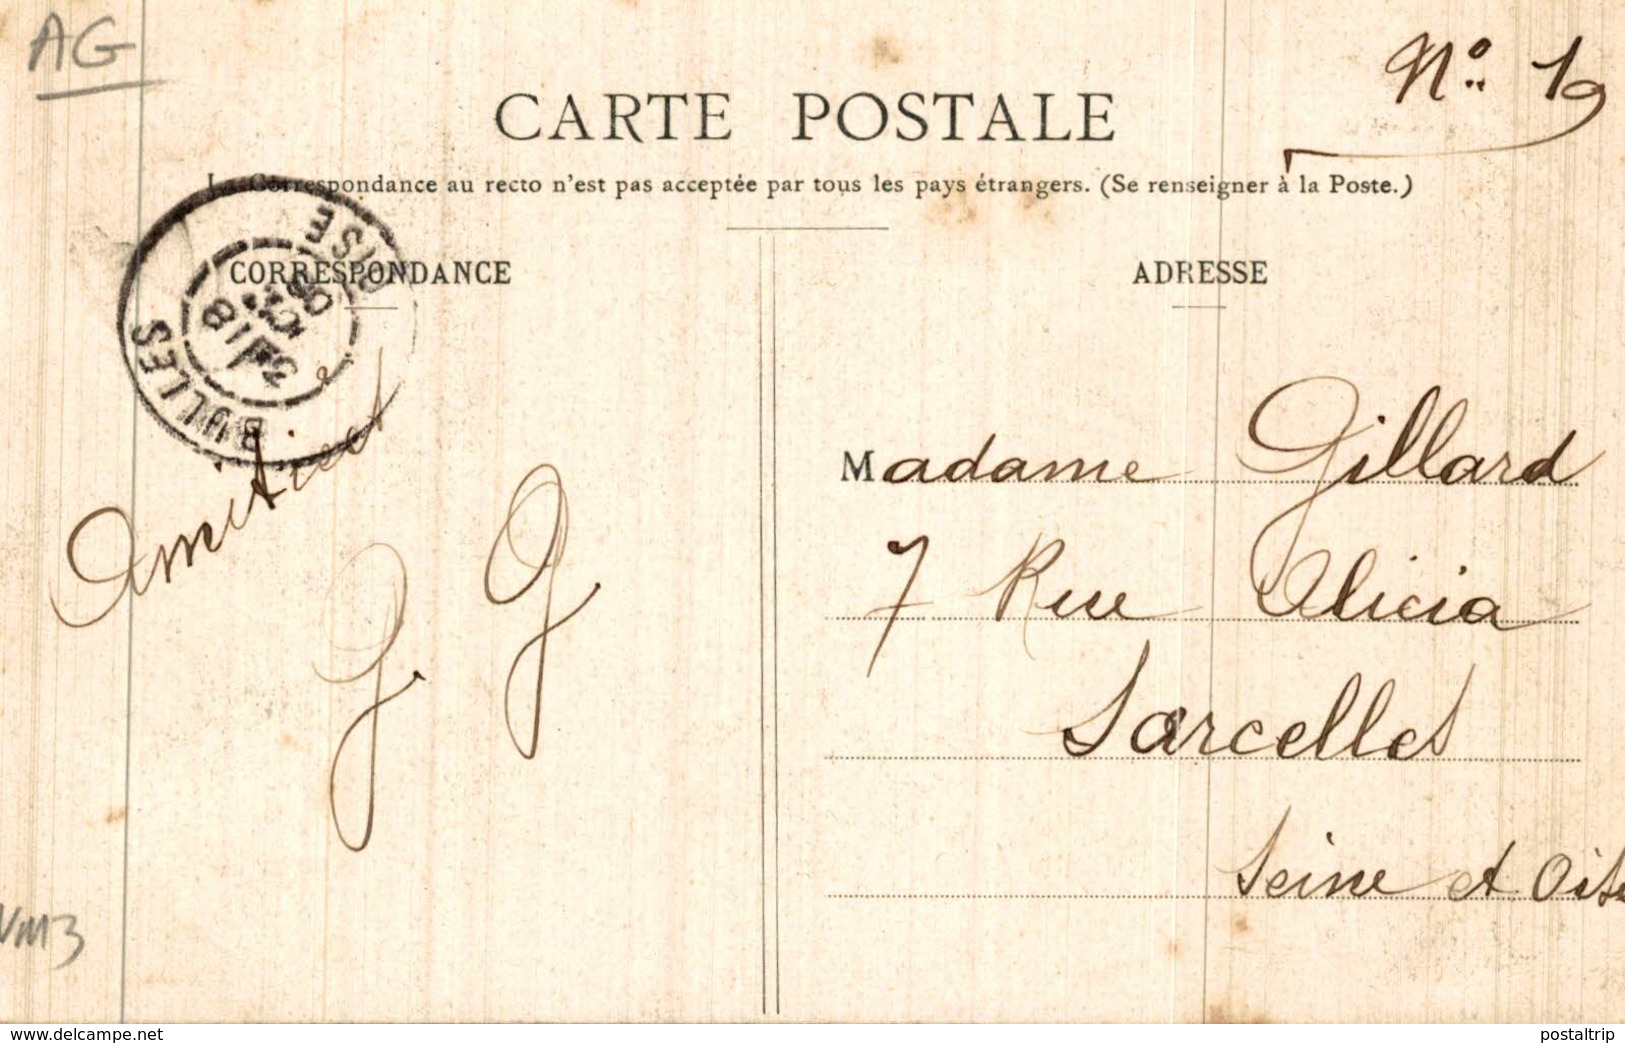 AG
Nº 19
CARTE POSTALE
La Correspondance au recto n'est pas acceptée par tous les pays étrangers. (Se renseigner à la Poste.)
CORRESPONDANCE
ADRESSE
BULLES
OISE
18
Amitiés
G. G
Madame Gillard
7 Rue Alicia
Sarcelles
Seine et Oise
VM3
www.delcampe.net
postaltrip